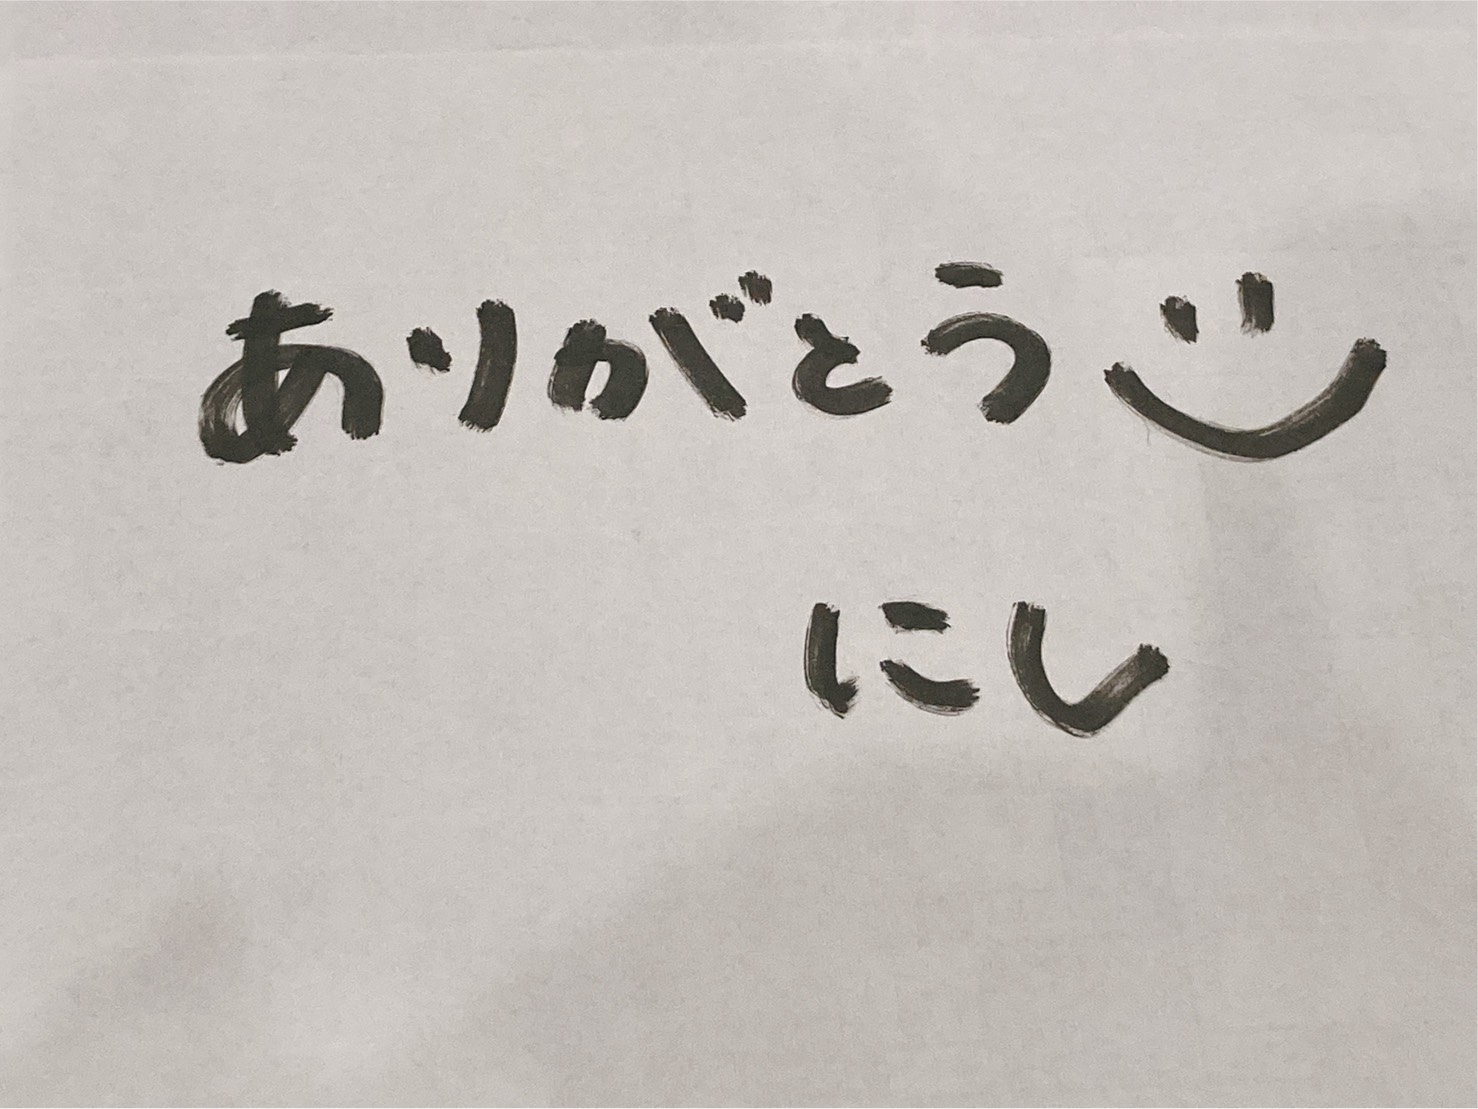 ありがとう
にし